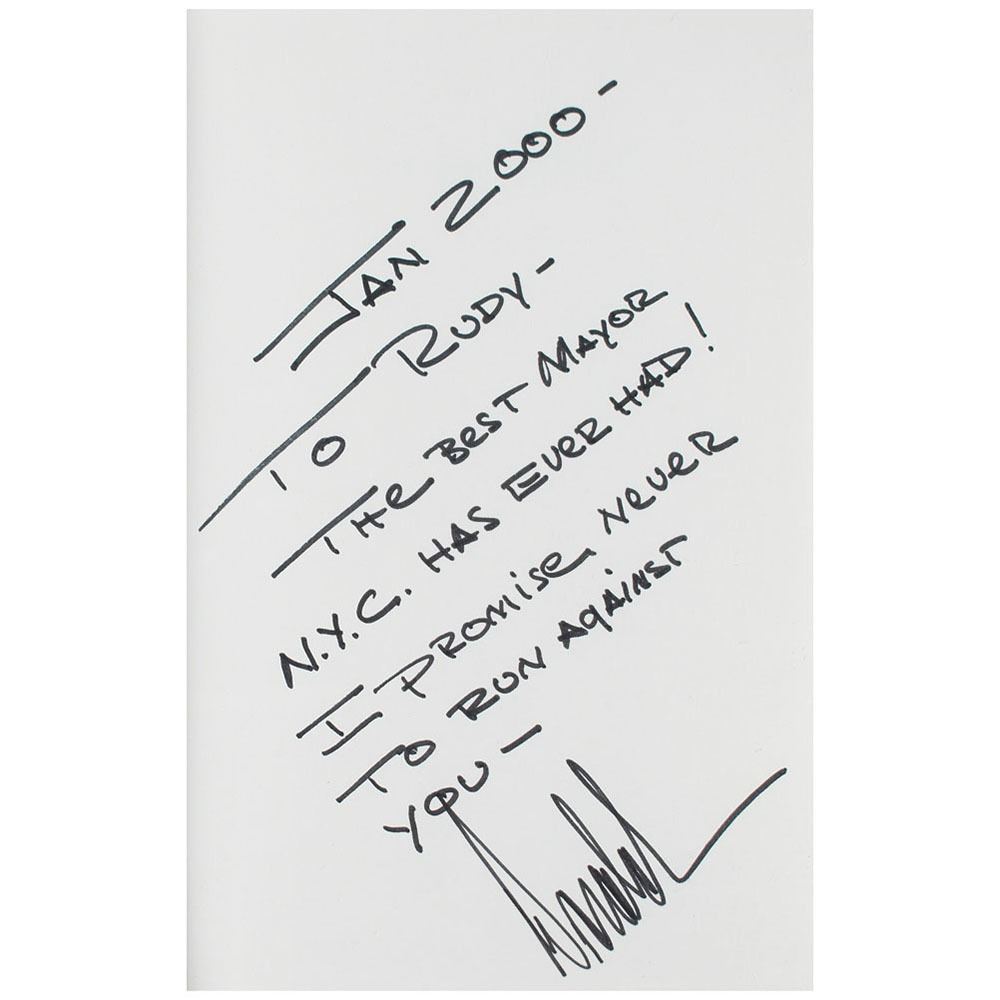 JAN 2000 -
TO RUDY -
THE BEST MAYOR
N.Y.C. HAS EVER HAD!
I PROMISE NEVER
TO RUN AGAINST
YOU -
Donald